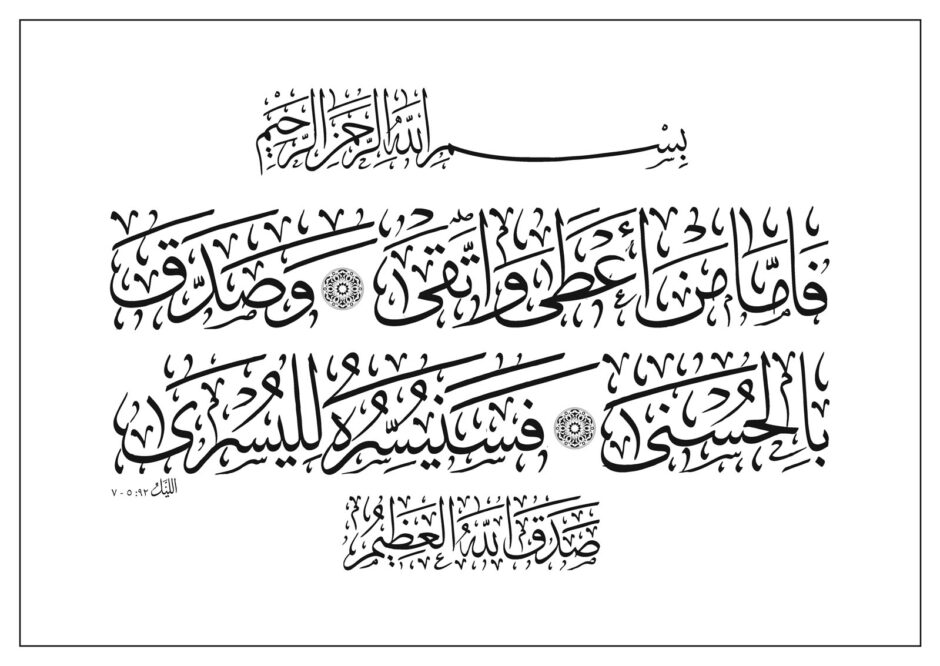 بِسْمِ اللهِ الرَّحْمٰنِ الرَّحِيْمِ
فَاَمَّا مَنْ أَعْطٰى وَاتَّقٰى ۙ وَصَدَّقَ
بِالْحُسْنٰى ۙ فَسَنُيَسِّرُهٗ لِلْيُسْرٰى
اللَّيْلُ ٩٢: ٥ - ٧
صَدَقَ اللهُ الْعَظِيْمُ